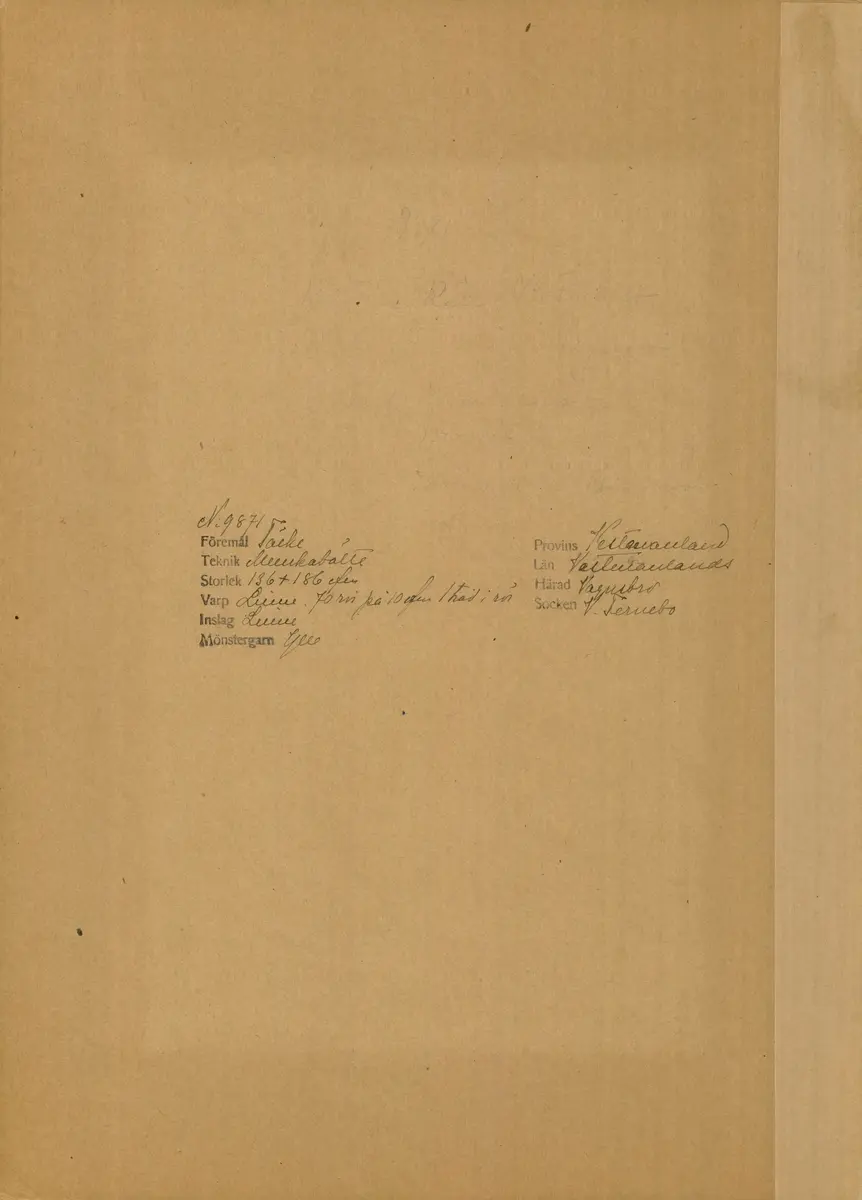 N. 9871
Föremål Täcke
Teknik Munkabälte
Storlek 136 + 186 cm
Varp Linne. 70 rör på 10 cm 1 tråd i rör
Inslag Linne
Mönstergarn Ylle
Provins Vestmanland
Län Västmanlands
Härad Vagnsbro
Socken V. Fernebo